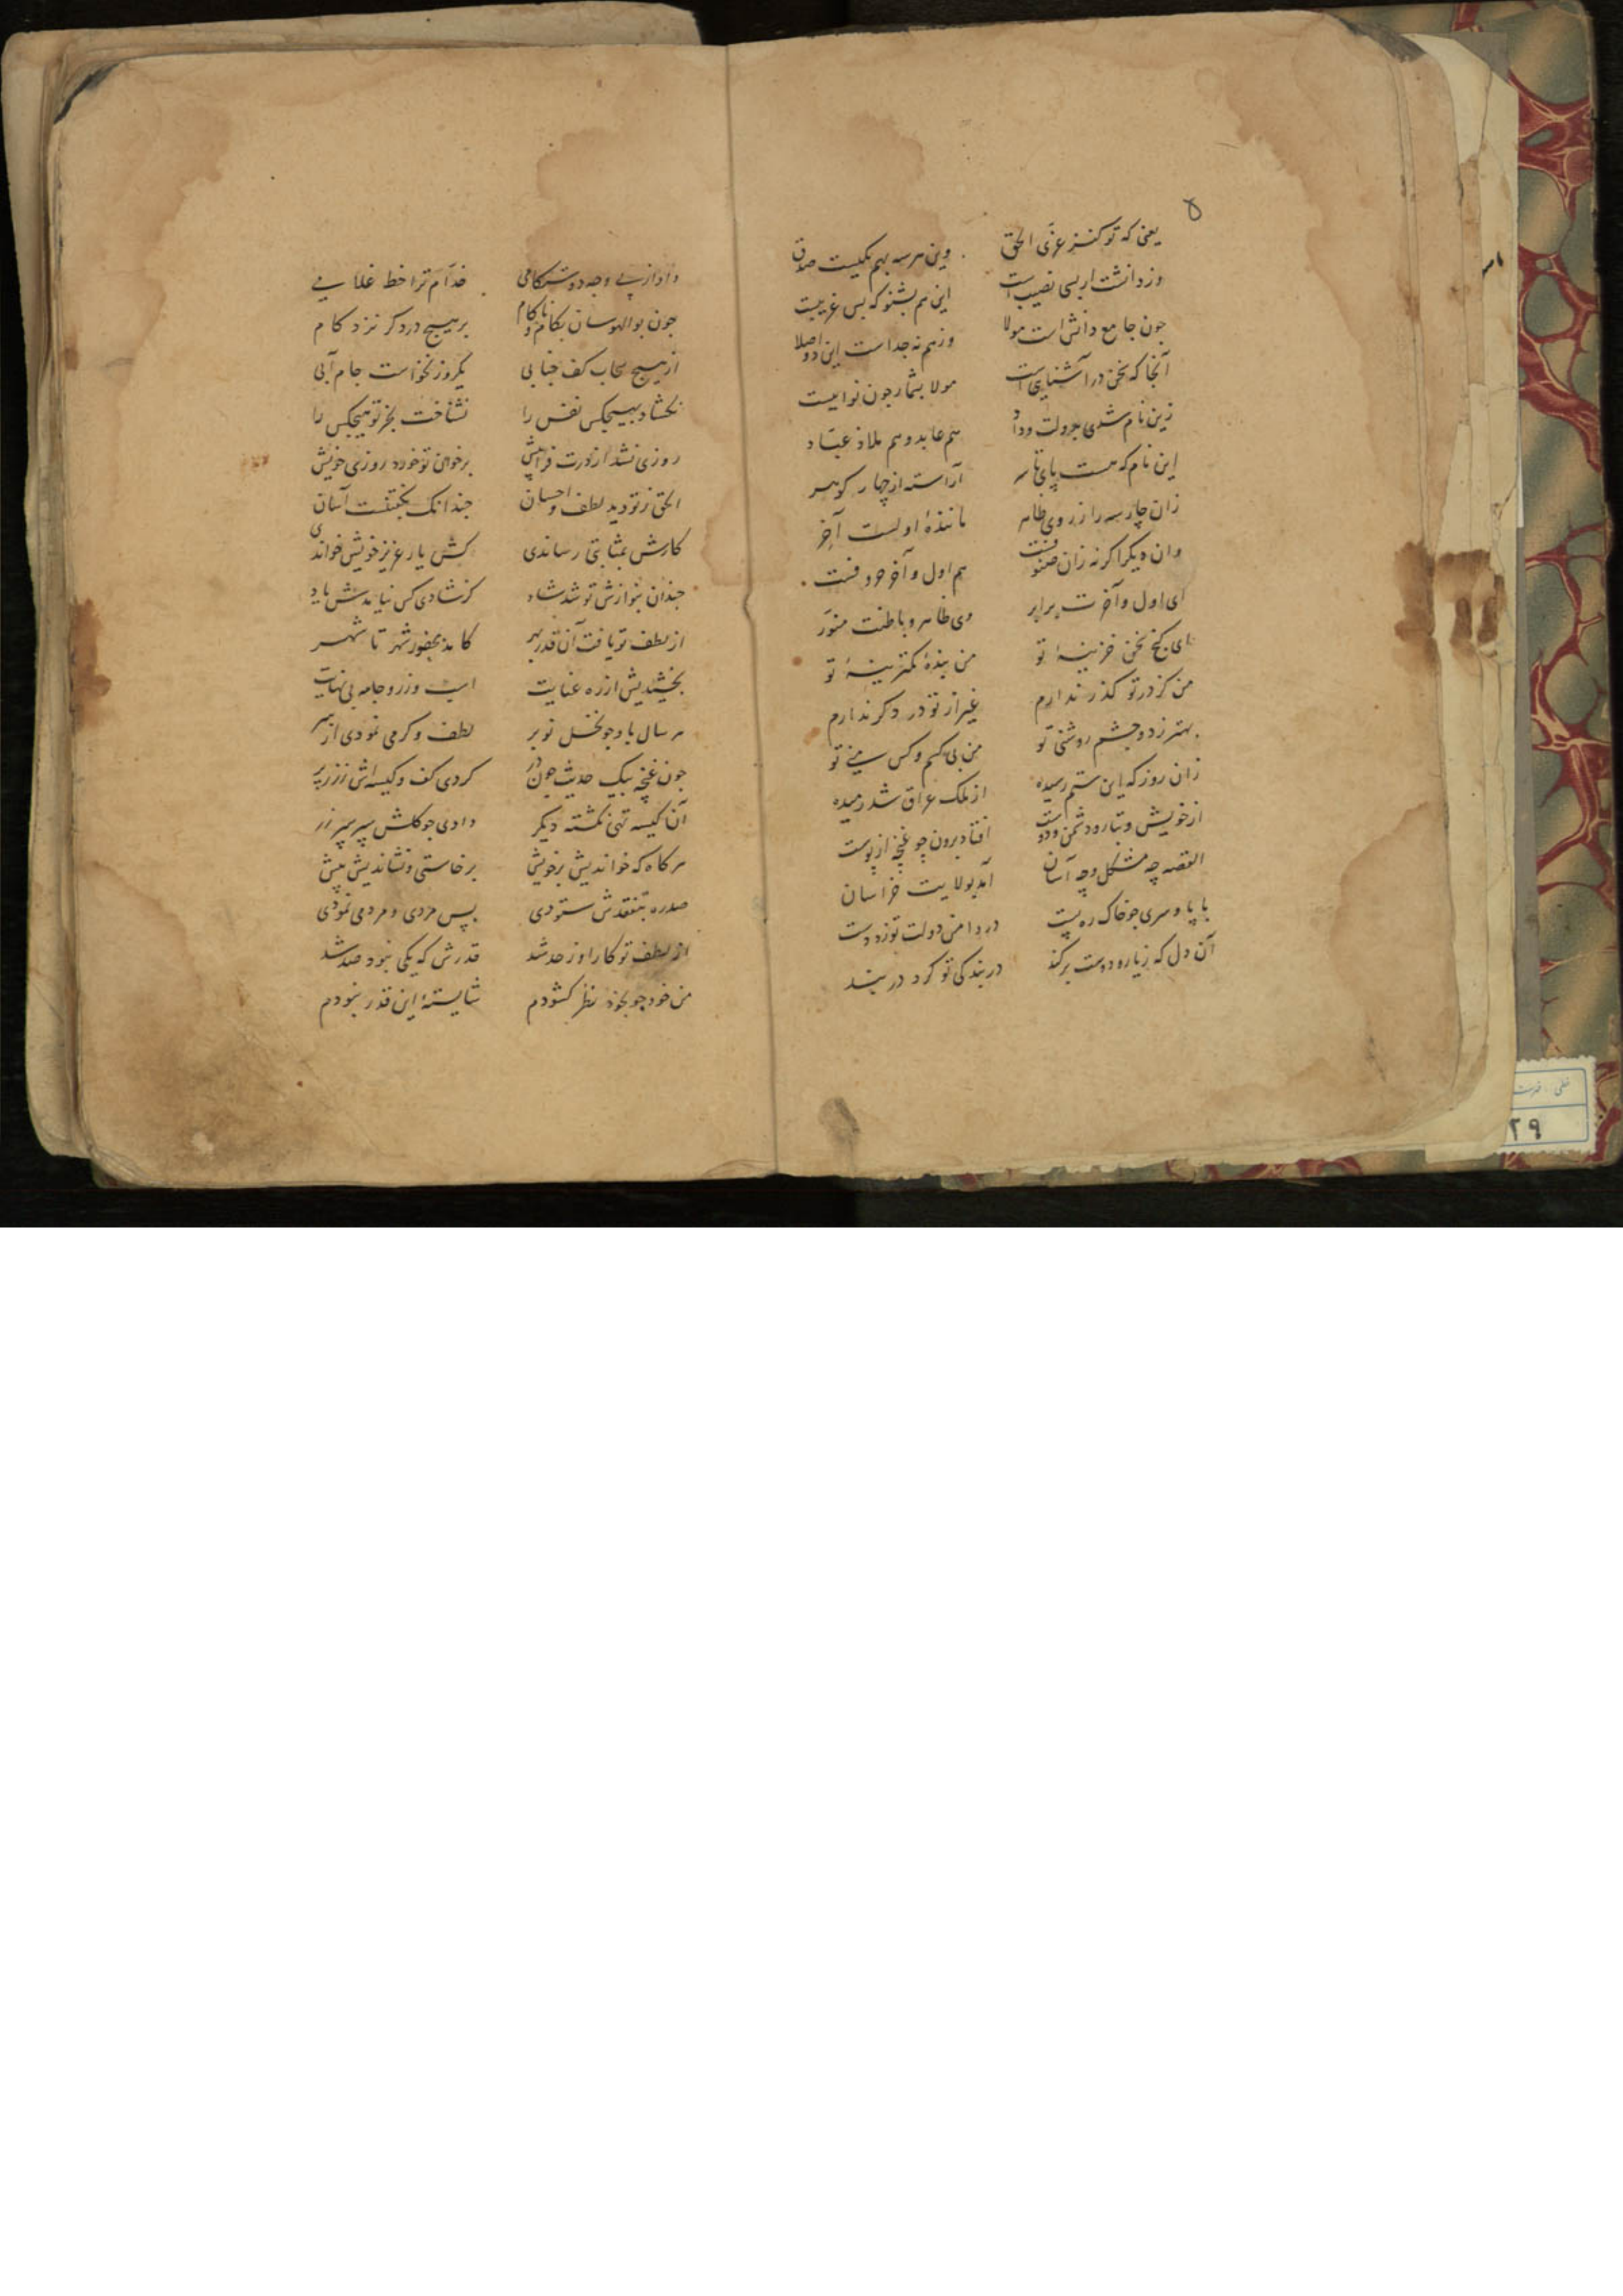 ۵
یعنی که تو کنز عزّی الحق وین هر سه بهم یکیست صدق
وز دانشت ار بسی نصیب است این هم بشنو که بس غریبست
جون جامع دانش است مولا وز هم نه جداست این دو اصلا
آنجا که سخن در آشنایی است مولا بشمار جون نواییست
زین نام شدی بدولت و داد هم عابد و هم ملاذ عبّاد
این نام که هست پای تا سر آراسته از چهار کوهر
زان چار سه را ز روی ظاهر مانندهٔ اولست آخر
وان دیکر اکرنه زان صنوفست هم اول و آخر حروفست
ای اول و آخرت برابر وی ظاهر و باطنت منوّر
ای کنج سخن خزینهٔ تو من بندهٔ کمترینهٔ تو
من کز در تو کذر ندارم غیر از تو در دکر ندارم
بهتر ز دو جشم روشنی تو من بی کسم و کس منی تو
زان روز که این ستم رسیده از ملک عراق شد رمیده
از خویش و تبار و دشمن و دوست افتاد برون چو غنچه از پوست
القصه چه مشکل و چه آسان آمد بولایت خراسان
با پا و سری جو خاک ره پست در دامن دولت تو زد دست
آن دل که ز یار و دوست برکند در بندکی تو کرد در بند
داد از پی وجه دوستکامی خدّام ترا خط غلامی
جون بوالهوسان بکام و ناکام بر هیج در دکر نزد کام
از هیج سحاب کف جنابی یکروز نخواست جام آبی
نکشاد بهیجکس نفس را نشناخت بجز تو هیجکس را
روزی نشد از درت فراپیش بر خوان تو خورد روزی خویش
الحق ز تو دید لطف و احسان جندانک بکفتنست آسان
کارش بمثابتی رساندی کش یار عزیز خویش خواندی
جندان بنوازش تو شد شاد کز شادی کس نیامدش یاد
از لطف تو یافت آن قدر بهر کامد بحضور شهر تا شهر
بخشیدیش از ره عنایت اسب و زر و جامه بی نهایت
هر سال باو جو نخل نوبر لطف و کرمی نمودی از سر
جون غنچه بیک حدیث جون در کردی کف و کیسه اش ز زر پر
آن کیسه تهی نکشته دیکر دادی جو کلش سپر سپر زر
هر کاه که خواندیش بر خویش برخاستی و نشاندیش پیش
صد ره بتفقدش ستودی بس مردی و مردمی نمودی
از لطف تو کار او ز حد شد قدرش که یکی نبود صد شد
من خود جو بخود نظر کشودم شایستهٔ این قدر نبودم
۲۹